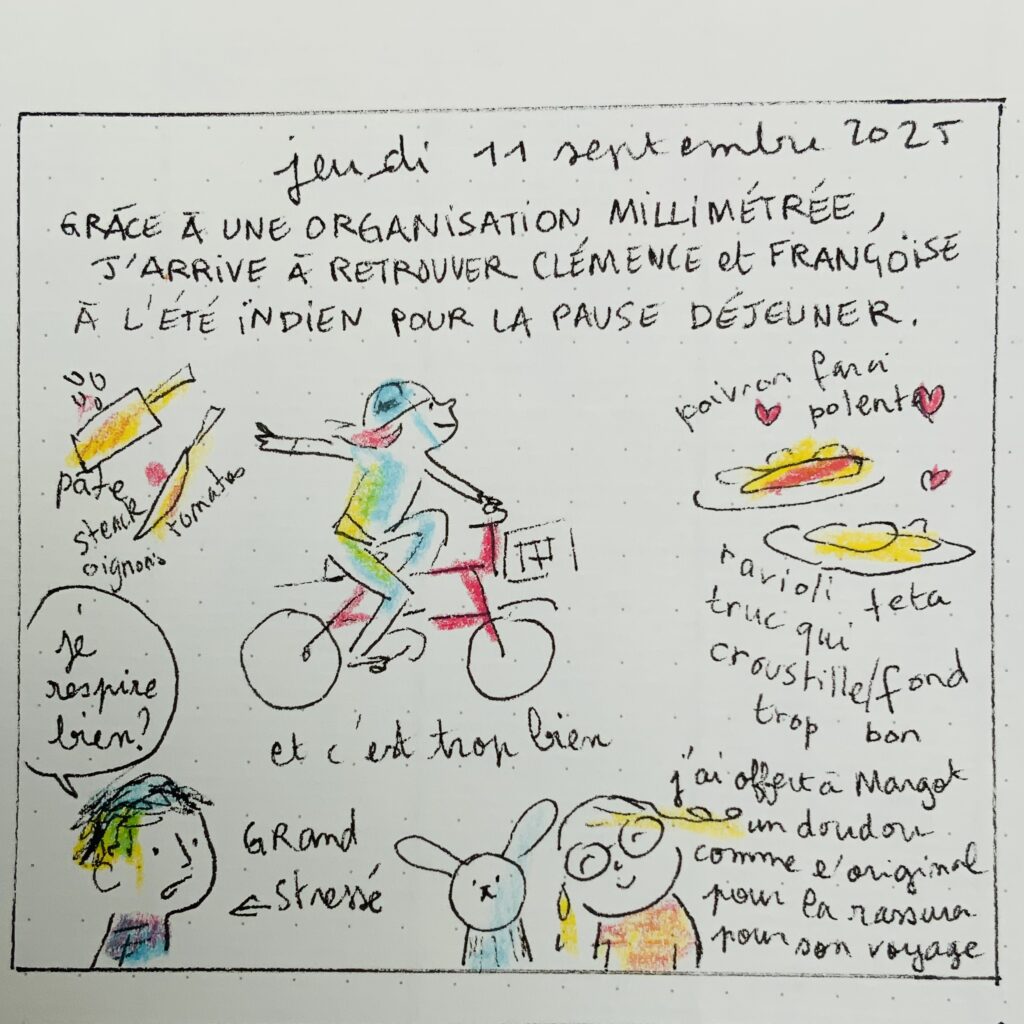 jeudi 11 septembre 2025
GRÂCE À UNE ORGANISATION MILLIMÉTRÉE,
J'ARRIVE À RETROUVER CLÉMENCE et FRANÇOISE
À L'ÉTÉ INDIEN POUR LA PAUSE DÉJEUNER.
pâte
steack
oignons
tomates
poivron farci
polenta
ravioli feta
truc qui
croustille/fond
trop bon
et c'est trop bien
je
respire
bien?
GRAND
stressé
j'ai offert à Margot
un doudou
comme l'original
pour la rassurer
pour son voyage